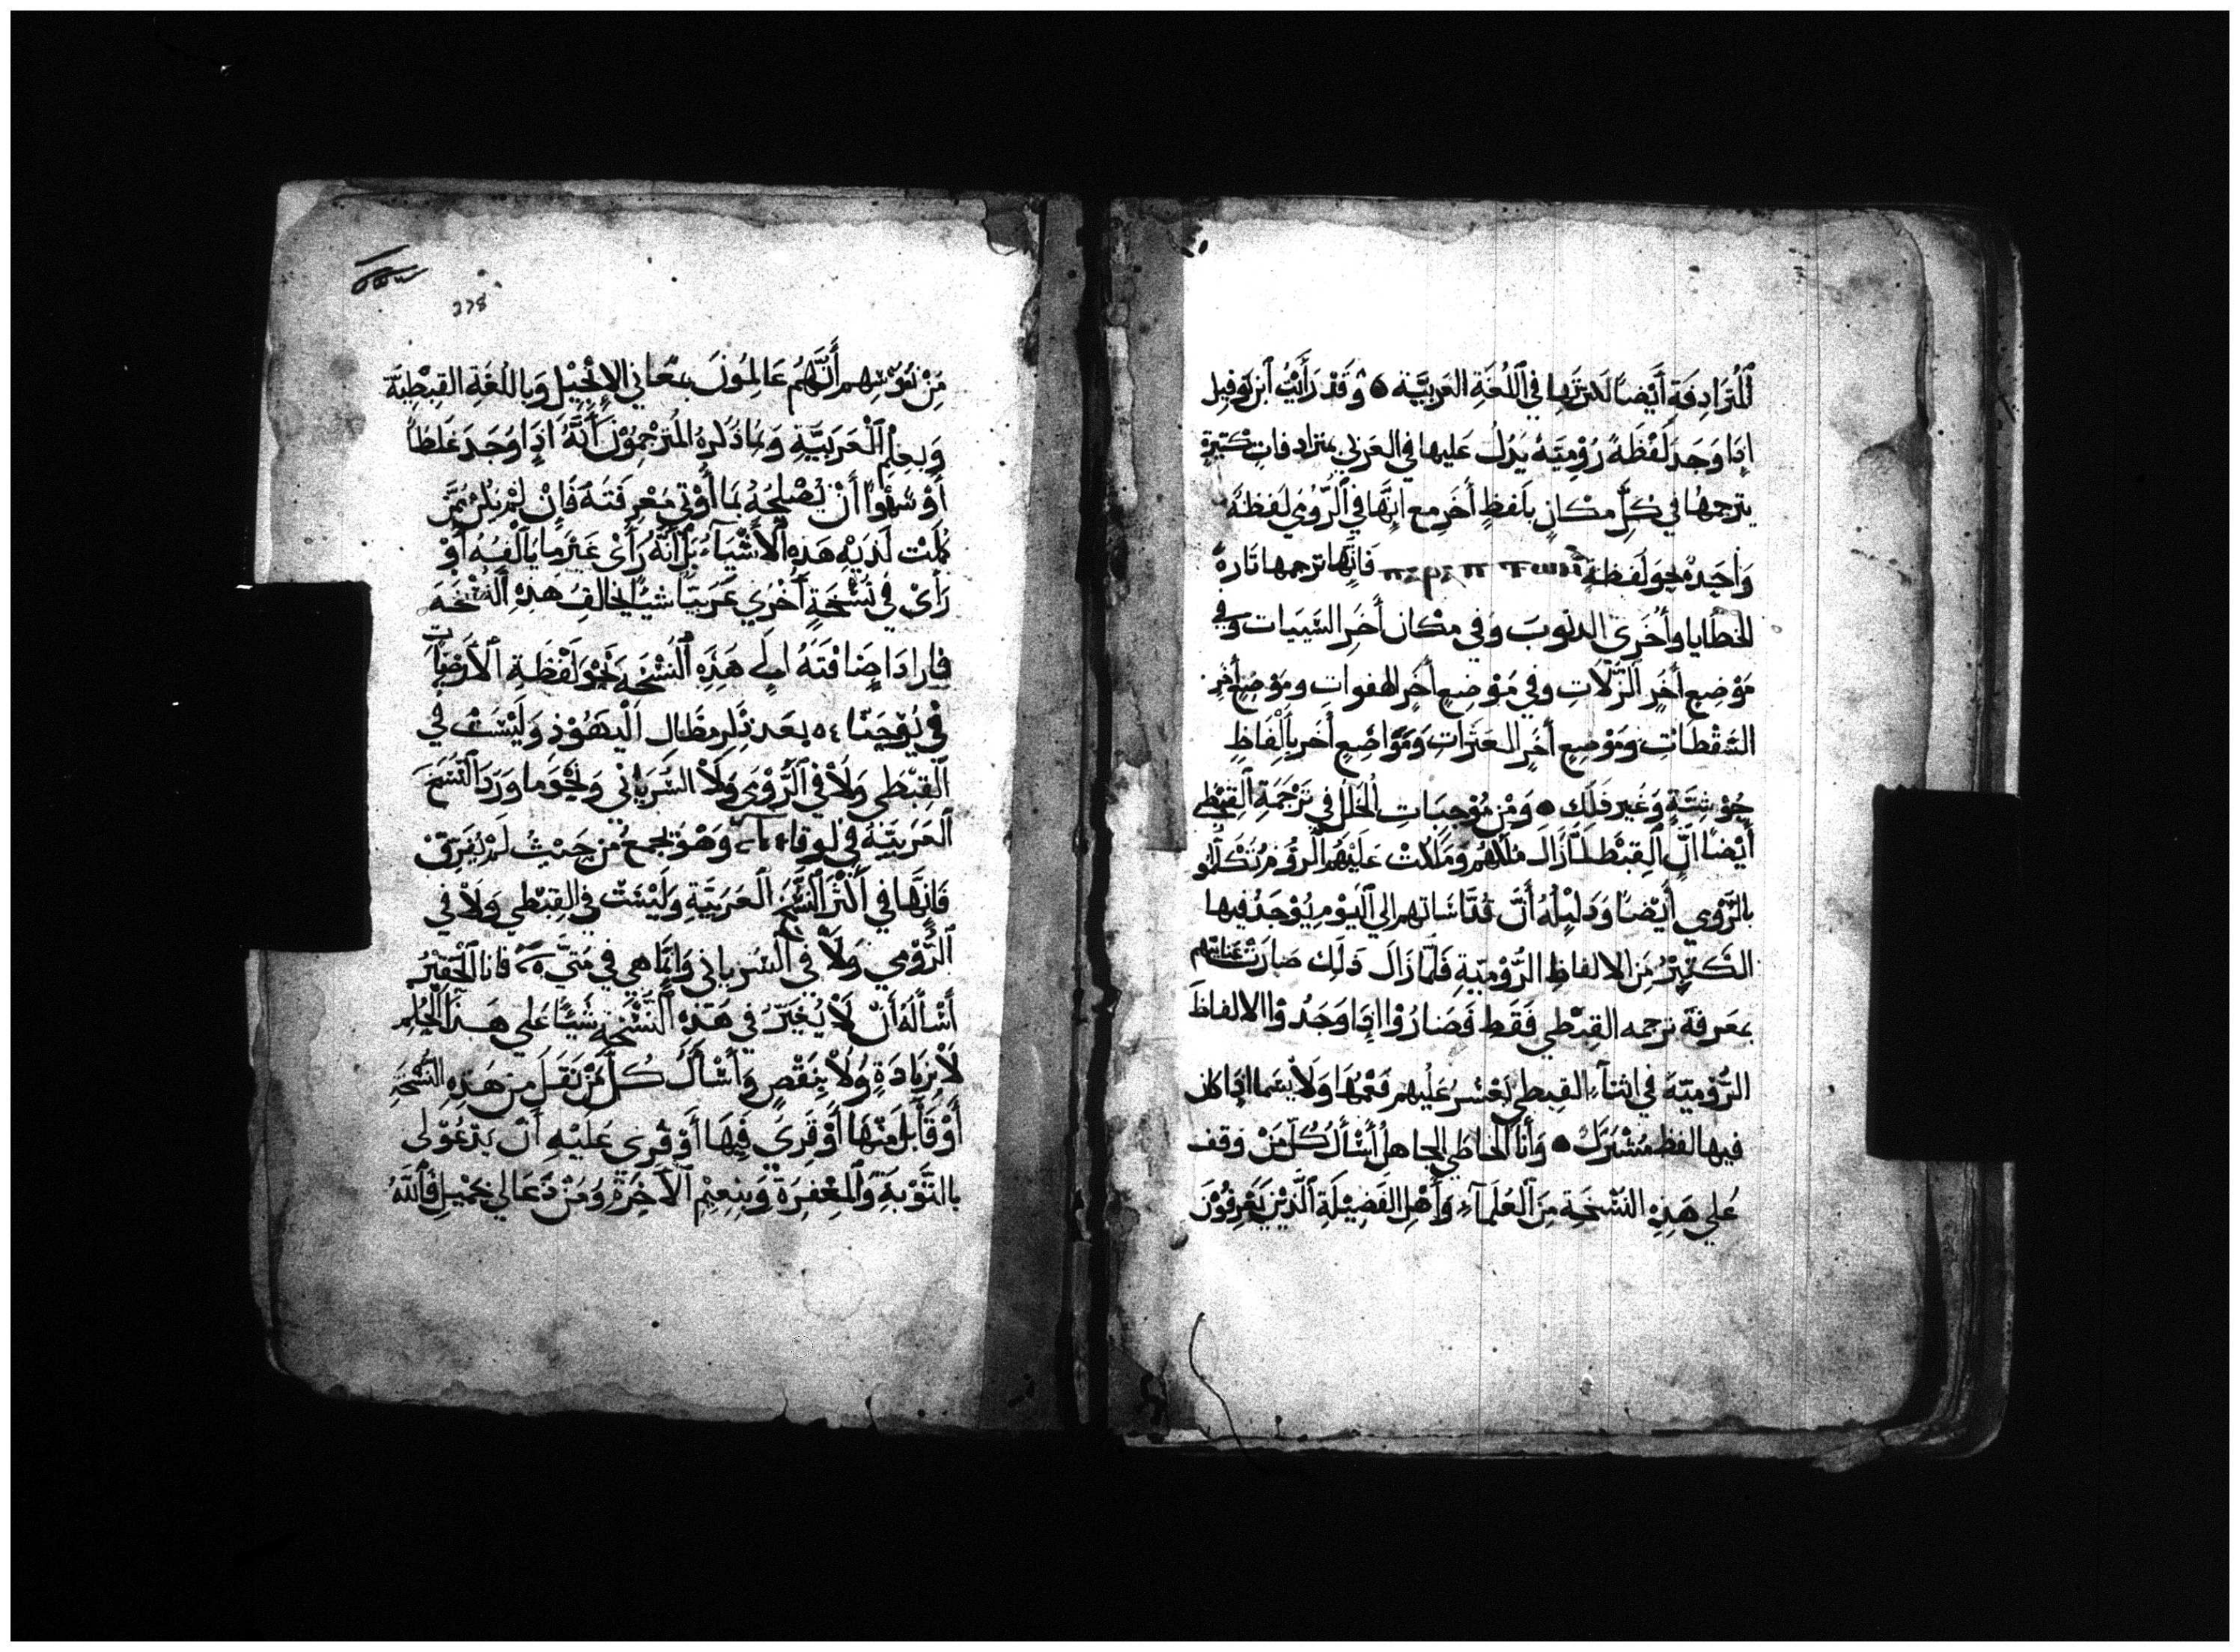 المُتَرادِفَةِ أَيْضًا لكثرتها في اللُغَةِ العَرَبِيَّة ۞ وَقَدْ رَأَيْتُ ابن توفيل
إذا وَجَدَ لَفْظَةً رُوْمِيَّة يَدُلُّ عَليها في العَرَبي بمترادفاتٍ كثيرةٍ
يترجمُها في كلِّ مكانٍ بلَفظٍ أُخَر مع انَّها في الرُّومي لَفظةً
وَاحِدةً نحو لَفظة فَانَّها ترجمها تارةً
الخطايا وأُخرى الذنوبَ وَفي مكان أُخَر السَّيِّيات وفي
مَوْضِع أُخَر الزَّلّاتِ وفي مَوْضِعٍ أُخَر الهفواتِ ومَوْضِعٍ أُخَر
السَّقْطاتِ وَمَوْضِعٍ أُخَرٍ العَثَراتِ وَمَوَاضِع أُخَر بأَلْفاظٍ
حُوْشِيَّةٍ وَغَير ذلك ۞ وَمِنْ مُوْجِبَاتِ الخَلَلِ في تَرْجَمَةِ القِبْطي
أَيْضًا انّ القِبْط لمّا زَالَ مُلكهُم وَمَلكَتْ عَلَيْهُم الرُوم تَكَلَّمُوا
بالرُّومي أَيْضًا وَدَليلُهُ أَنَّ قُدّاسَاتهم الي اليَوْمِ يُوْجَدُ فيها
الكَثِيْرُ مِنَ الالفاظِ الرُّوْمِيّةِ فَلَمّا زَالَ ذَلِكَ صَارَتْ عنايتهم
بمَعرفَة ترجمه القِبْطي فَقَط فَصَارُوْا إِذا وَجَدُوْا الالفاظَ
الرُّوْمِيّة في اثناءِ القِبطي يَعْسُرُ عَلَيْهِم فَهْمُهَا وَلَا سِيَما اذا كان
فيها لفظ مُشْتَرَكٌ ۞ وَأنا الخاطي الجاهلُ أَسْأَلُ كُلَّ مَنْ وقف
عَلي هَذِهِ النُسْخَة مِنَ العُلَمآءِ وَأَهْلِ الفَضِيْلَةِ الَّذِيْنَ يَعْرِفُوْنَ
278
مِنْ نُفُوْسِهِم أَنَّهُم عَالِمُونَ بمعَاني الإنْجِيْلِ وَبِاللُغَةِ القِبْطِيَّة
وَبعِلْمِ العَرَبيَّةِ وَبمَا ذَكرهُ المُتَرْجِمُوْنَ أَنَّهُ اذا وَجَدَ غَلَطًا
أَوْ سَهْوًا أَنْ يُصْلِحَهُ بمَا أُوْتي مَعْرِفَتَهُ فَانْ لَمْ يكُنْ مِمَّن
كَمُلَتْ لَدَيْهِ هَذِهِ الأَشْيَآءُ بَلْ أنَّهُ رَأَىْ غَيْرَ مَا يَأْلَفُهُ أَوْ
رَأَىْ فِي نُسْخَةٍ أُخْرَي عَرَبيًّا شَيًا يُخالِفُ هَذِهِ النُسْخَة
فاراد اضَافَتَهُ الى هَذِهِ النُسْخَةِ نَحْوَ لَفْظَةِ الأَرَضِيّات
فِي يُوْحَنَّا بَعد ذكر مظال اليَهُوْدِ وَلَيْسَتْ في
القِبْطي وَلا في الرُّوْمي وَلا السُّرياني وَنَحْوَ مَا وَرَدَ النُسَخ
العَرَبيّة في لوقا وَهْوَ يجمع مِن حَيْثُ لَمْ يُفَرِّقْ
فَانَّها في أَكْثَر النُسَخ العَرَبيَّةِ وَلَيْسَتْ في القِبْطي وَلَا في
الرُّوْمي وَلَا في السُرياني وَانَّما هي في مَتَّي فأنا الحَقِيْرُ
أَسْأَلهُ أَنْ لَا يُغَيّرَ في هَذِهِ النُسْخَةِ شَيًّا عَلي هَذا الحُكْمِ
لَا بزيَادَةٍ وَلَا بنَقْصٍ وَأَسْأَلُ كُلَّ مَنْ نَقَلَ مِنْ هَذِهِ النُّسْخَةِ
أَوْ قَابَلَ مِنْهَا أَوْ قَرَى فِيْهَا أَوْ قُرِي عَلَيْهِ أَنْ يَدْعُوْ لي
بالتَّوْبَةِ وَالمَغْفِرَةِ وَبِنِعِيْمِ الآخِرَةِ وَمَنْ دَعَا لي بجَمِيْلٍ فَاللَّهُ